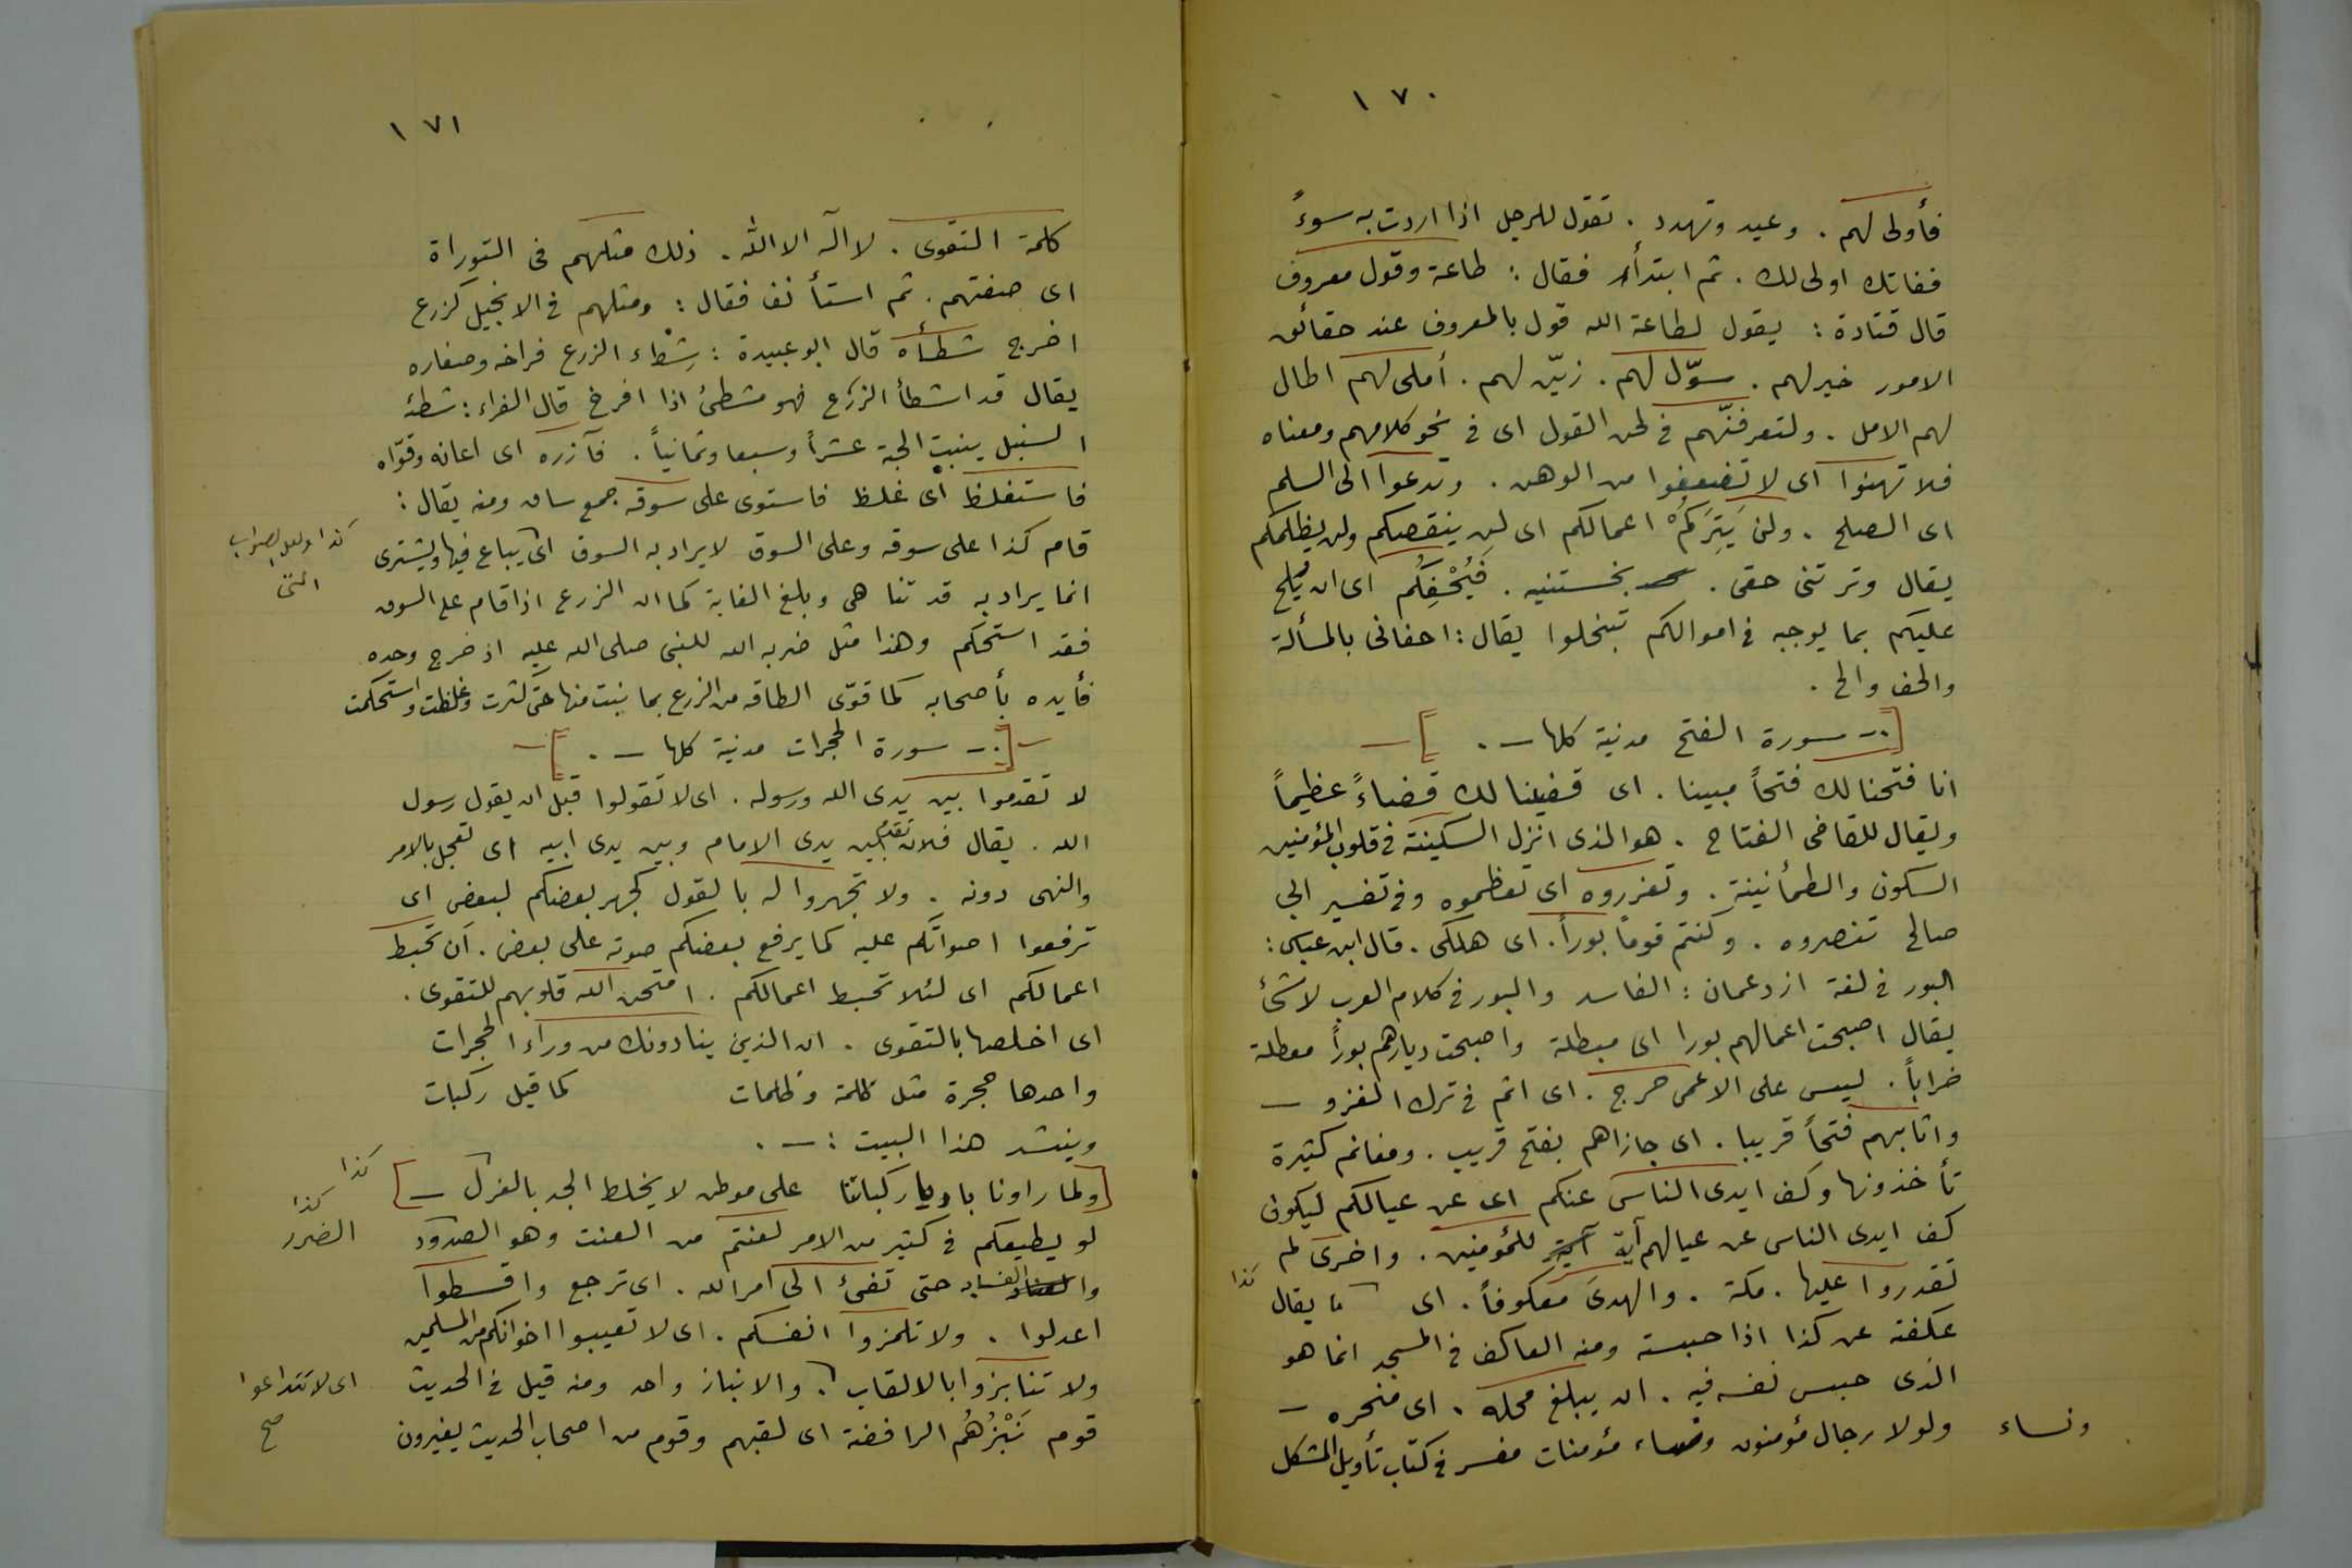 ١٧٠
فأولى لهم . وعيد وتهدد . تقول للرجل اذا اردت به سوءً
ففاتك اولى لك . ثم ابتدأ فقال : طاعة وقول معروف
قال قتادة : يقول لطاعة الله قول بالمعروف عند حقائق
الامور خير لهم . سوّل لهم . زيّن لهم . أملى لهم اطال
لهم الامل . ولتعرفنّهم فى لحن القول اى فى نحو كلامهم ومعناه
فلا تهنوا اى لا تضعفوا من الوهن . وتدعوا الى السلم
اى الصلح . ولن يَتِرَكُمْ اعمالكم اى لن ينقصكم ولن يظلمكم
يقال وترتنى حقى . بخستنيه . فَيُحْفِكُم اى ان يُلح
عليكم بما يوجبه فى اموالكم تبخلوا يقال : احفانى بالمسألة
والحف والح .
[.- سورة الفتح مدنية كلها - . ]
انا فتحنا لك فتحاً مبينا . اى قضينا لك قضاءً عظيماً
ويقال للقاضى الفتاح . هو الذى انزل السكينة فى قلوب المؤمنين
السكون والطمأنينة . وتعزروه اى تعظموه وفى تفسير ابى
صالح تنصروه . وكنتم قوماً بوراً . اى هلكى . قال ابن عباس :
البور فى لغة ازد عمان : الفاسد والبور فى كلام العرب لا شئ
يقال اصبحت اعمالهم بورا اى مبطلة واصبحت ديارهم بوراً معطلة
خراباً . ليس على الاعمى حرج . اى اثم فى ترك الغزو -
واثابهم فتحاً قريبا . اى جازاهم بفتح قريب . ومغانم كثيرة
تأخذونها وكف ايدى الناس عنكم اى عن عيالكم ليكون
كف ايدى الناس عن عيالهم آية للمؤمنين . واخرى لم
تقدروا عليها . مكة . والهدىَ معكوفاً . اى ما يقال
كذا
عكفته عن كذا اذا حبسته ومنه العاكف فى المسجد انما هو
الذى حبس نفسه فيه . ان يبلغ محله . اى منحره -
ولولا رجال مؤمنون ونساء مؤمنات مفسر فى كتاب تأويل المشكل
ونساء
١٧١
كلمة التقوى . لا اله الا الله . ذلك مثلهم فى التوراة
اى صفتهم . ثم استأنف فقال : ومثلهم فى الانجيل كزرع
اخرج شطأه قال ابو عبيدة : شِطْاء الزرع فراخه وصغاره
يقال قد اشطأ الزرع فهو مشطئ اذا افرخ قال الفراء : شطئه
السنبل ينبت الحبة عشراً وسبعا وثمانياً . فآزره اى اعانه وقوّاه
فاستغلظ اى غلظ فاستوى على سوقه جمع ساق ومنه يقال :
قام كذا على سوقه وعلى السوق لا يراد به السوق اى يباع فيها ويشترى
كذا ولعل الصواب
التى
انما يراد به قد تنا هى وبلغ الغاية كما ان الزرع اذا قام على السوق
فقد استحكم وهذا مثل ضربه الله للنبى صلى الله عليه اذ خرج وحده
فأيده بأصحابه كما قوّى الطاقه من الزرع بما نبت منها حتى كثرت وغلظت واستحكمت
[.- سورة الحجرات مدنية كلها - . ]
لا تقدموا بين يدى الله ورسوله . اى لا تقولوا قبل ان يقول رسول
الله . يقال فلان تقدم بين يدى الامام وبين يدى ابيه اى تعجل بالامر
والنهى دونه . ولا تجهروا له بالقول كجهر بعضكم لبعض اى
ترفعوا اصواتكم عليه كما يرفع بعضكم صوته على بعض . أن تحبط
اعمالكم اى لئلا تحبط اعمالكم . امتحن الله قلوبهم للتقوى .
اى اخلصها بالتقوى . ان الذين ينادونك من وراء الحجرات
واحدها حجرة مثل ظلمة وظلمات كما قيل ركبات
وينشد هذا البيت : - .
[ولما راونا باديا ركباتنا على موطن لا يخلط الجد بالهزل - ]
كذا
لو يطيعكم فى كثير من الامر لعنتم من العنت وهو الصدود
كذا
الضرر
والفساد حتى تفئ الى امر الله . اى ترجع واقسطوا
اعدلوا . ولا تلمزوا انفسكم . اى لا تعيبوا اخوانكم من المسلمين
ولا تنابزوا بالالقاب . والانباز واحد ومنه قيل فى الحديث
اى لا تتداعوا
صح
قوم نَبْزُهُم الرافضة اى لقبهم وقوم من اصحاب الحديث يغيرون